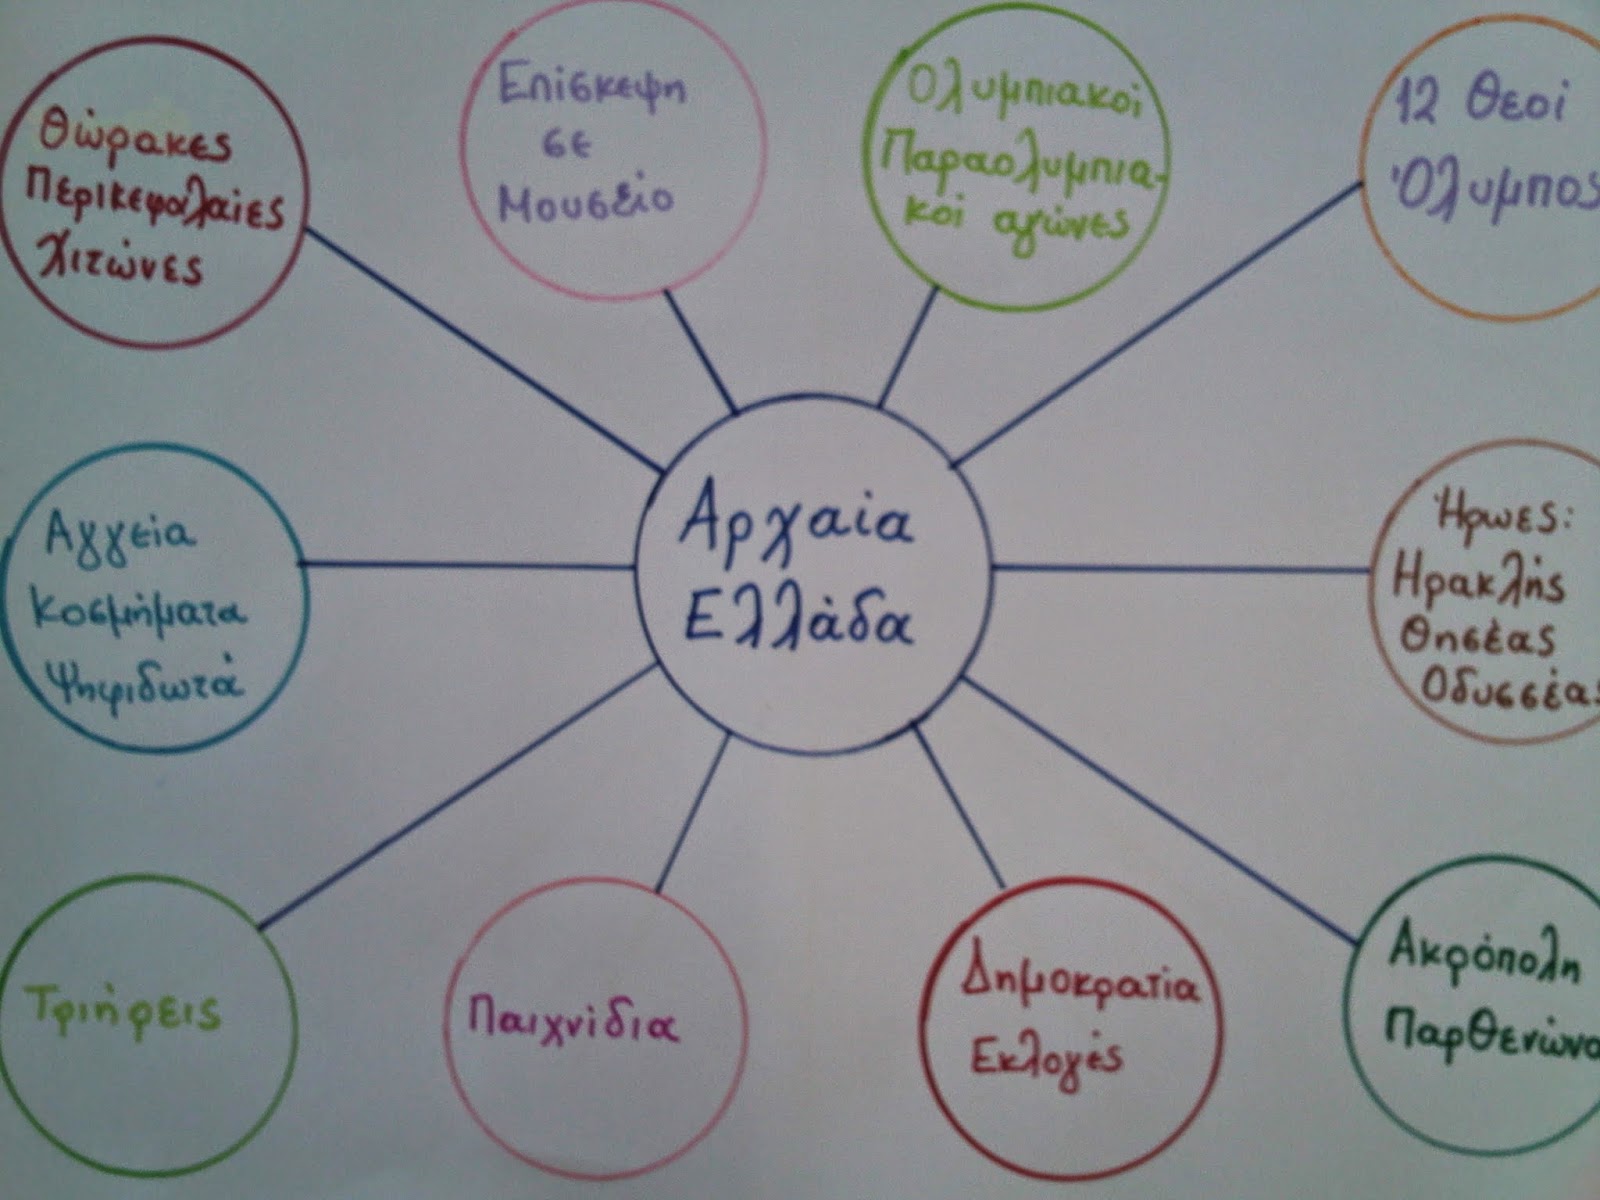 Θώρακες
Περικεφαλαίες
Χιτώνες
Επίσκεψη
σε
Μουσείο
Ολυμπιακοί
Παραολυμπια-
κοί αγώνες
12 Θεοί
Όλυμπος
Αγγεία
Κοσμήματα
Ψηφιδωτά
Αρχαία
Ελλάδα
Ήρωες:
Ηρακλής
Θησέας
Οδυσσέας
Τριήρεις
Παιχνίδια
Δημοκρατία
Εκλογές
Ακρόπολη
Παρθενώνα